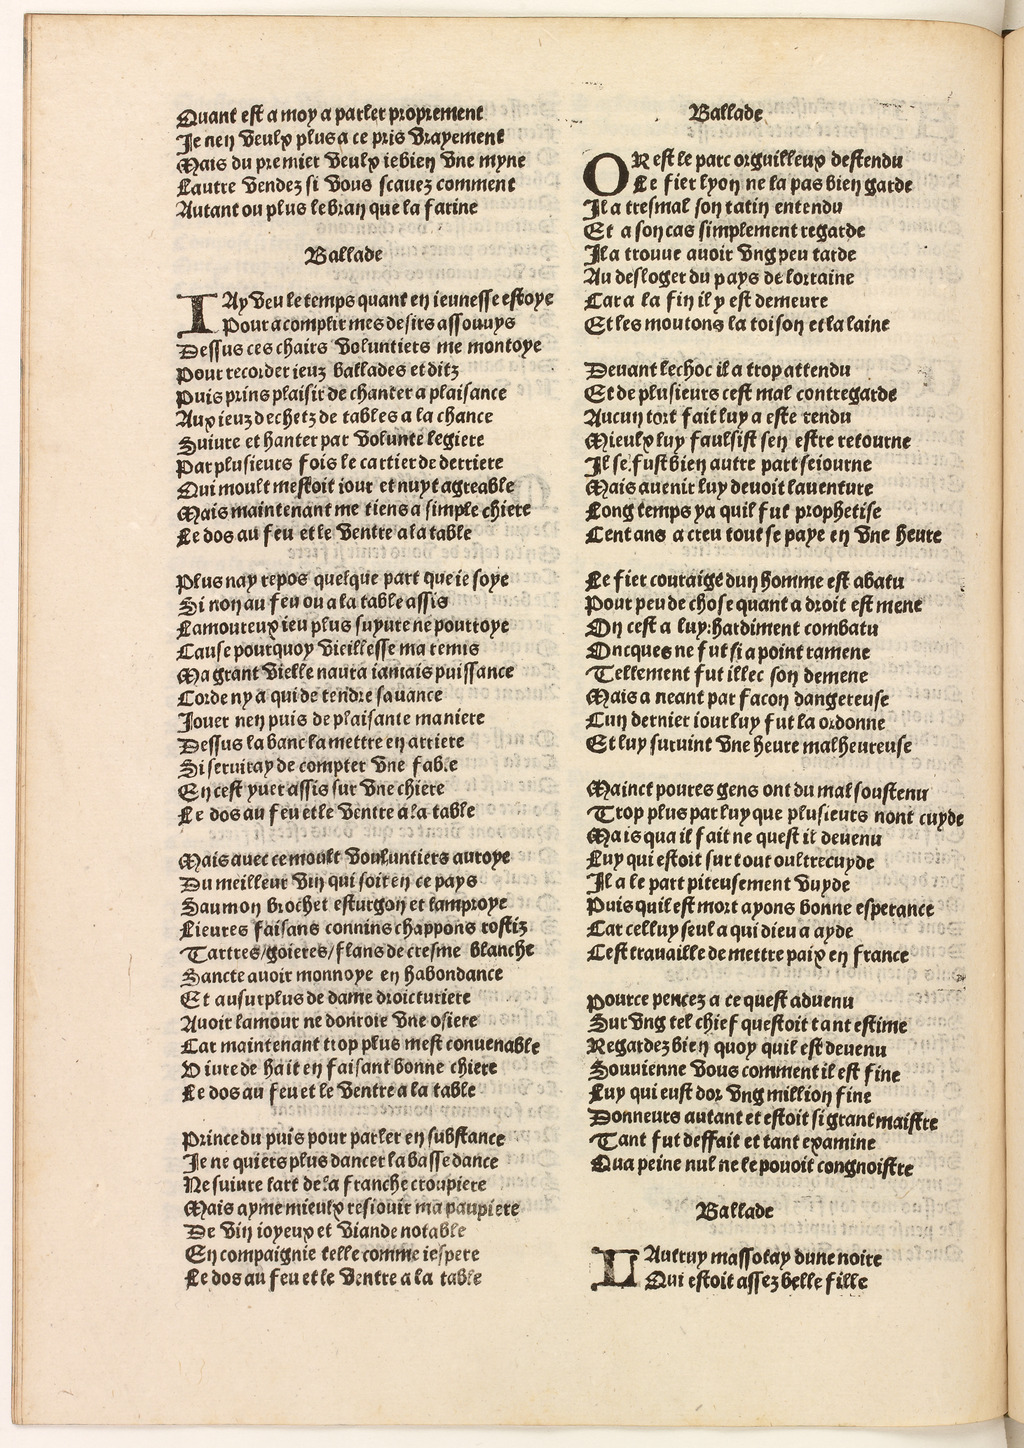 Quant est a moy a parler proprement
Je nen veulx plus a ce pris vrayement
Mais du premier veulx ie bien vne myne
Lautre vendez si vous scauez comment
Autant ou plus le bran que la farine
Ballade
IAy veu le temps quant en ieunesse estoye
Pour acomplir mes desirs assouuys
Dessus ces chairs voluntiers me montoye
Pour recorder ieuz ballades et ditz
Puis prins plaisir de chanter a plaisance
Aux ieuz dechetz de tables a la chance
Suiure et hanter par volunte legiere
Par plusieurs fois le cartier de derriere
Qui moult mestoit iour et nuyt agreable
Mais maintenant me tiens a simple chiere
Le dos au feu et le ventre a la table
Plus nay repos quelque part que ie soye
Si non au feu ou a la table assis
Lamoureux ieu plus suyure ne pourroye
Cause pourquoy vieillesse ma remis
Ma grant vielle naura iamais puissance
Corde ny a qui de tendre sauance
Jouer nen puis de plaisante maniere
Dessus la banc la mettre en arriere
Si seruiray de compter vne fable
En cest yuer assis sur vne chiere
Le dos au feu et le ventre a la table
Mais auec ce moult vouluntiers auroye
Du meilleur vin qui soit en ce pays
Saumon brochet esturgon et lamproye
Lieures faisans connins chappons rostiz
Tartres/goieres/flans de cresme blanche
Sancte auoir monnoye en habondance
Et au surplus de dame droicturiere
Auoir lamour ne donroie vne osiere
Car maintenant trop plus mest conuenable
Viure de hait en faisant bonne chiere
Le dos au feu et le ventre a la table
Prince du puis pour parler en substance
Je ne quiers plus dancer la basse dance
Ne suiure lart de la franche croupiere
Mais ayme mieulx resiouir ma paupiere
De vin ioyeux et viande notable
En compaignie telle comme iespere
Le dos au feu et le ventre a la table
Ballade
OR est le parc orguilleux destendu
Le fier lyon ne la pas bien garde
Il a tresmal son tatin entendu
Et a son cas simplement regarde
Il a trouue auoir vng peu tarde
Au desloger du pays de lorraine
Car a la fin il y est demeure
Et les moutons la toison et la laine
Deuant le choc il a trop attendu
Et de plusieurs cest mal contregarde
Aucun tort fait luy a este rendu
Mieulx luy faulsist sen estre retourne
Il se fust bien autre part seiourne
Mais auenir luy deuoit lauenture
Long temps ya quil fut prophetise
Cent ans a creu tout se paye en vne heure
Le fier couraige dun homme est abatu
Pour peu de chose quant a droit est mene
On cest a luy:hardiment combatu
Oncques ne fut si a point ramene
Tellement fut illec son demene
Mais a neant par facon dangereuse
Lun dernier iour luy fut la ordonne
Et luy suruint vne heure malheureuse
Mainct poures gens ont du mal soustenu
Trop plus par luy que plusieurs nont cuyde
Mais qua il fait ne quest il deuenu
Luy qui estoit sur tout oultrecuyde
Il a le part piteusement vuyde
Puis quil est mort ayons bonne esperance
Car celluy seul a qui dieu a ayde
Cest trauaille de mettre paix en france
Pource pencez a ce quest aduenu
Sur vng tel chief questoit tant estime
Regardez bien quoy quil est deuenu
Souuienne vous comment il est fine
Luy qui eust dor vng million fine
Donneurs autant et estoit si grant maistre
Tant fut deffait et tant examine
Qua peine nul ne le pouoit congnoistre
Ballade
LAutruy massoray dune noire
Qui estoit assez belle fille